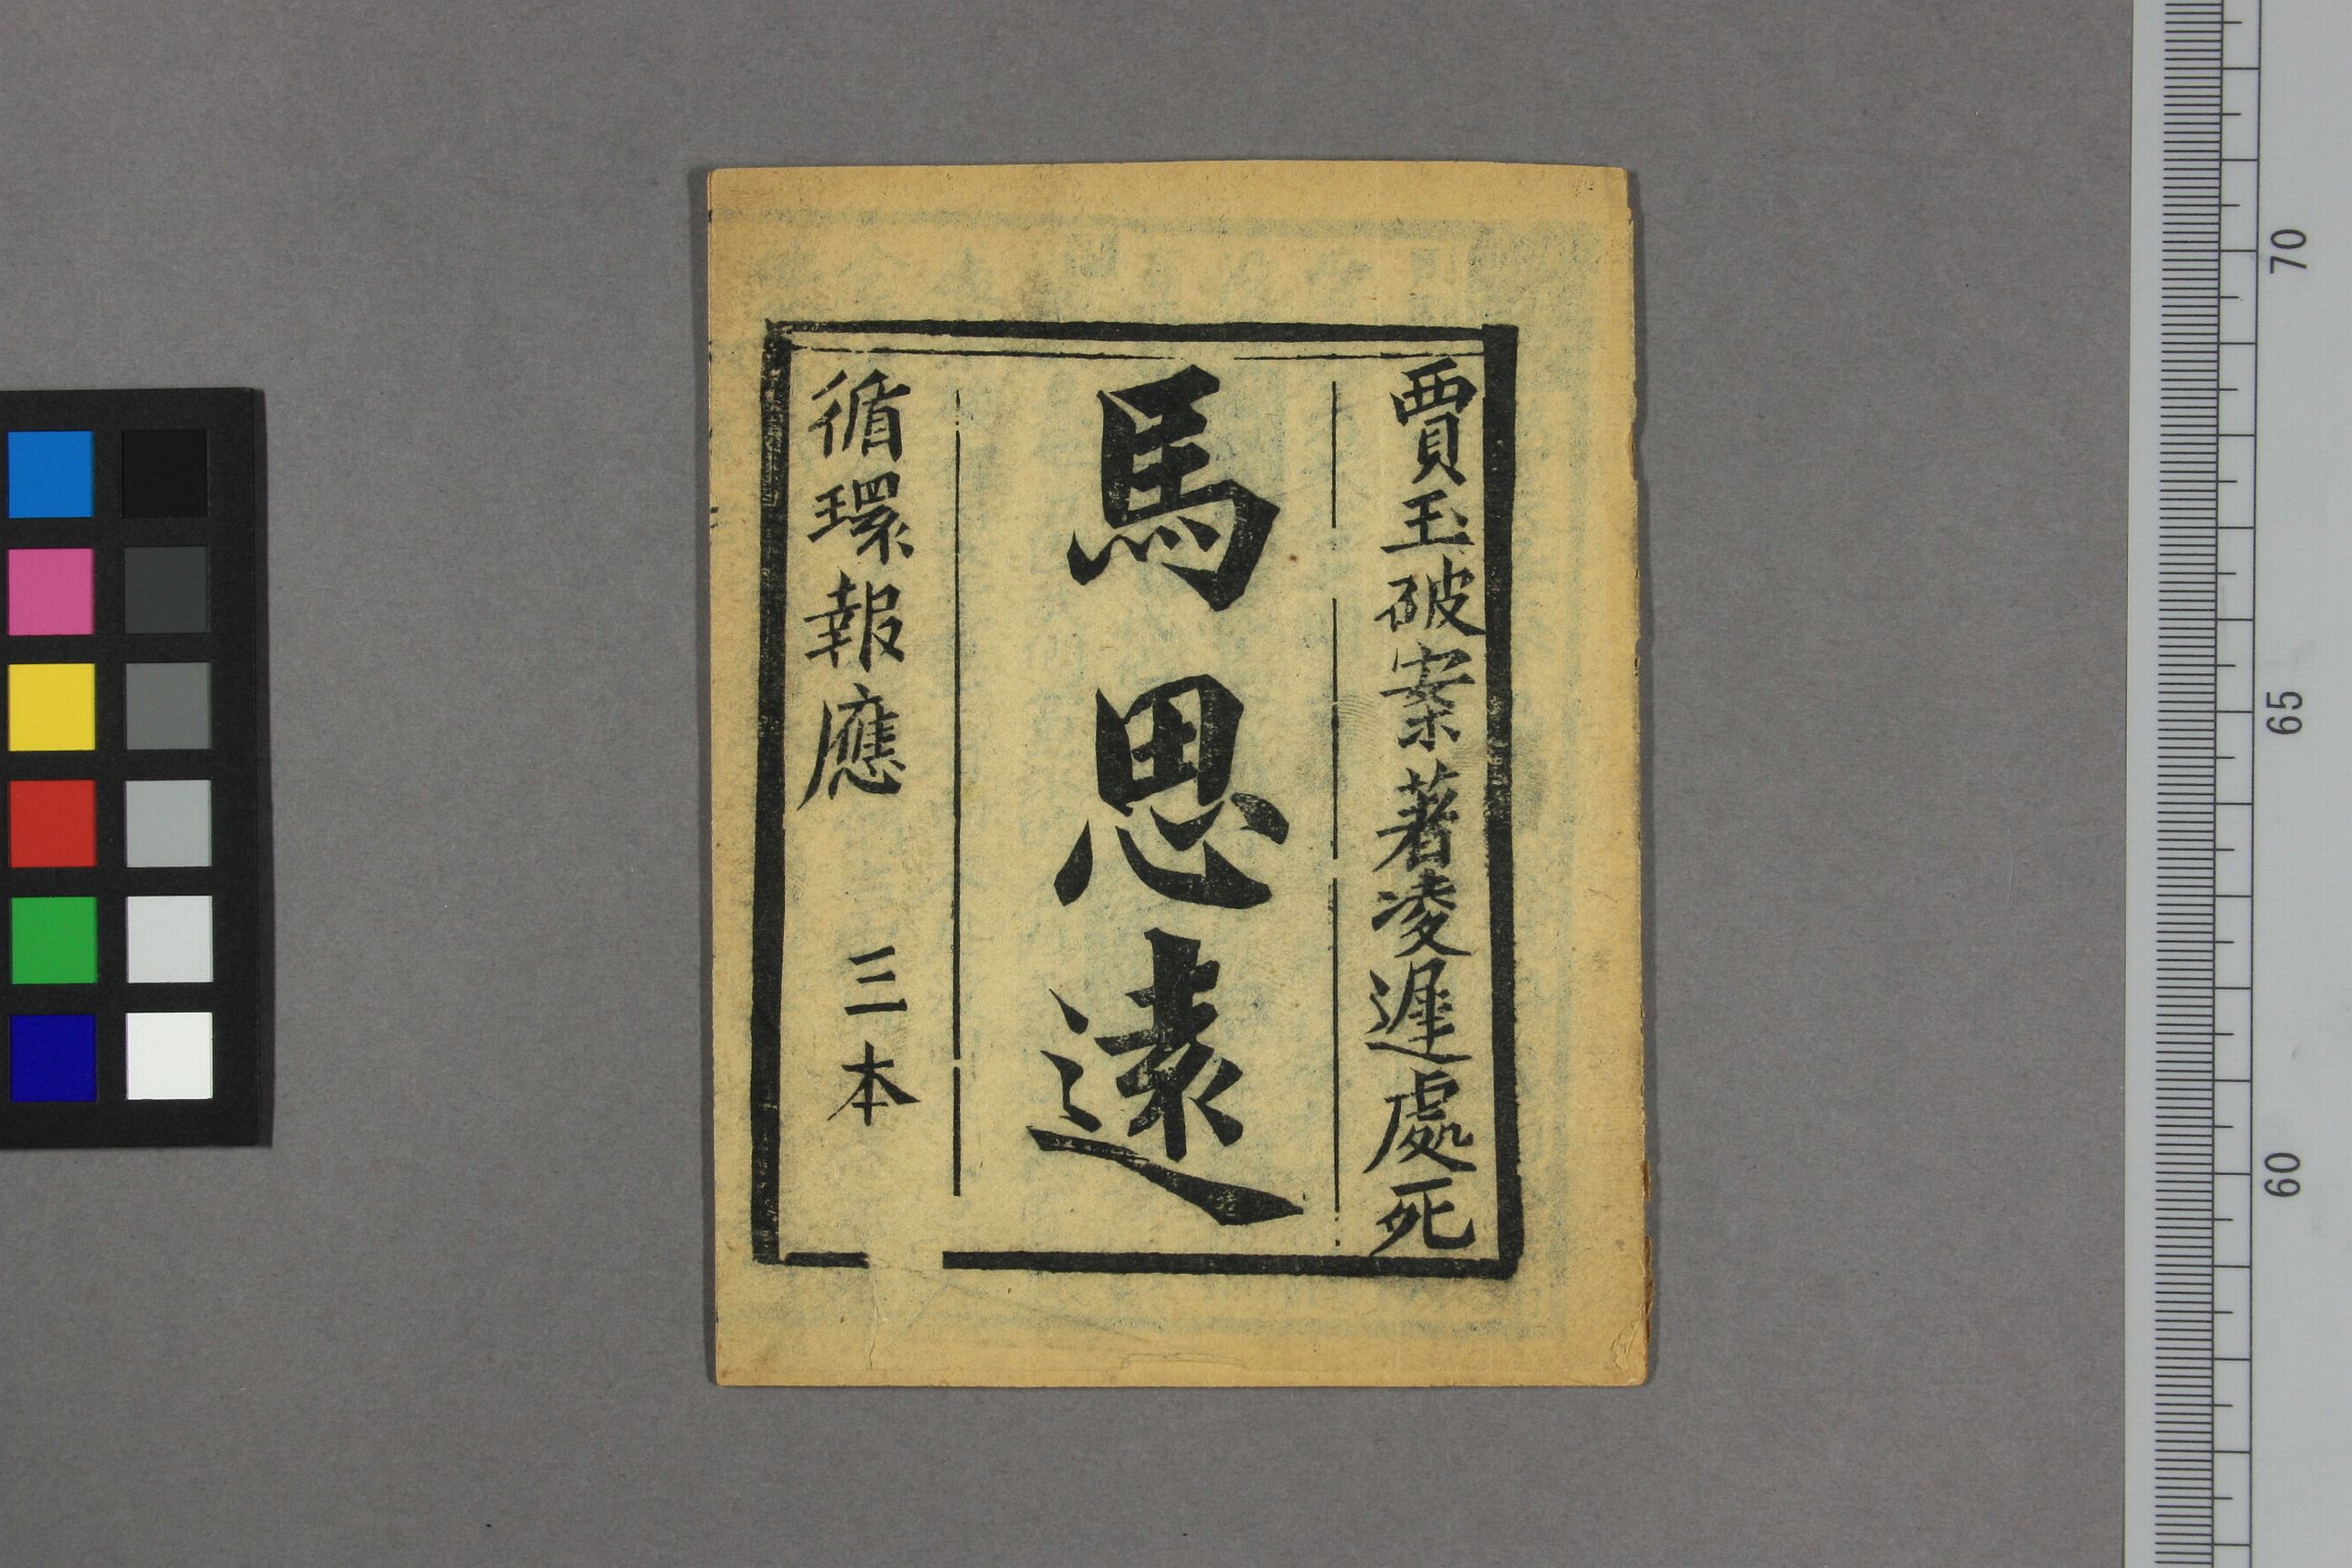 賈玉破案著凌遲處死
馬思遠
循環報應 三本
70
65
60